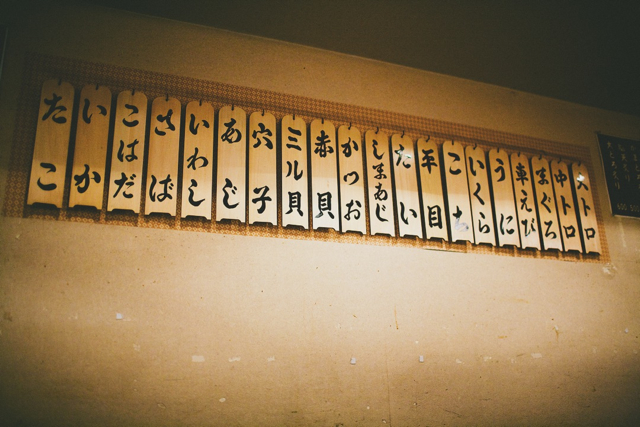 大トロ
中トロ
まぐろ
車えび
うに
いくら
こち
平目
たい
しまあじ
かつお
赤貝
ミル貝
穴子
あじ
いわし
さば
こはだ
いか
たこ